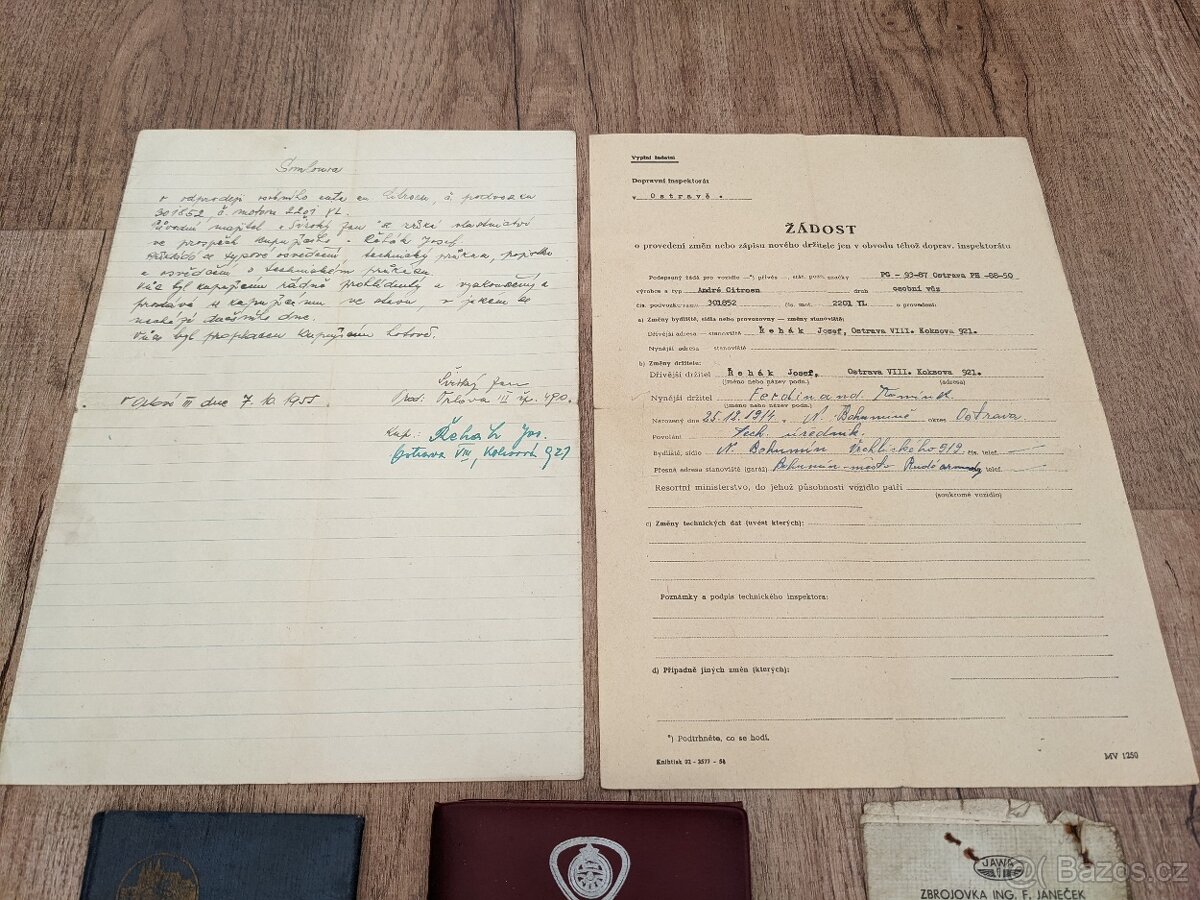 Smlouva
o odprodeji osobního auta zn. Citroen, č. podvozku
301852, č. motoru 2201 YL.
Původní majitel - Široký Jan se zříká vlastnictví
ve prospěch kupujícího - Řehák Josef
technický průkaz,
a osvědčení o technickém průkazu.
Vůz byl kupujícím řádně prohlédnutý a vyzkoušený a
prodává se kupujícímu ve stavu v jakém se
nachází dnešního dne.
Vůz byl kupujícím hotově.
Široký Jan
dne 7. 10. 1955
Prod: Orlová III čp. 490.
Kup: Řehák Jos.
Ostrava VIII, Koksová 921
Vyplní žadatel
Dopravní inspektorát
v Ostravě.
ŽÁDOST
o provedení změn nebo zápisu nového držitele jen v obvodu téhož doprav. inspektorátu
Podepsaný žádá pro vozidlo —*) přívěs , stát. pozn. značky PG - 93-87 Ostrava PH -88-50
výrobce a typ André Citroen druh osobní vůz
čís. podvozku 301852 čís. mot. 2201 YL o provedení:
a) Změny bydliště, sídla nebo provozovny — změny stanoviště:
Dřívější adresa — stanoviště Řehák Josef, Ostrava VIII. Koksova 921.
Nynější adresa stanoviště
b) Změny držitele:
Dřívější držitel Řehák Josef, Ostrava VIII. Koksova 921.
(jméno nebo název podn.) (adresa)
Nynější držitel Ferdinand Kominek
(jméno nebo název podn.)
Narozený dne 25.12.1914 v N. Bohumíně okres Ostrava
Povolání tech. úředník
Bydliště, sídlo N. Bohumín Vrchlického 519 čís. telef.
Přesná adresa stanoviště (garáž) Bohumín-město Rudé armády telef.
Resortní ministerstvo, do jehož působnosti vozidlo patří
(soukromé vozidlo)
c) Změny technických dat (uvést kterých):
Poznámky a podpis technického inspektora:
d) Případně jiných změn (kterých):
*) Podtrhněte, co se hodí.
Knihtisk 22 - 3577 - 54
MV 1250
JAWA
ZBROJOVKA ING. F. JANEČEK
Bazos.cz